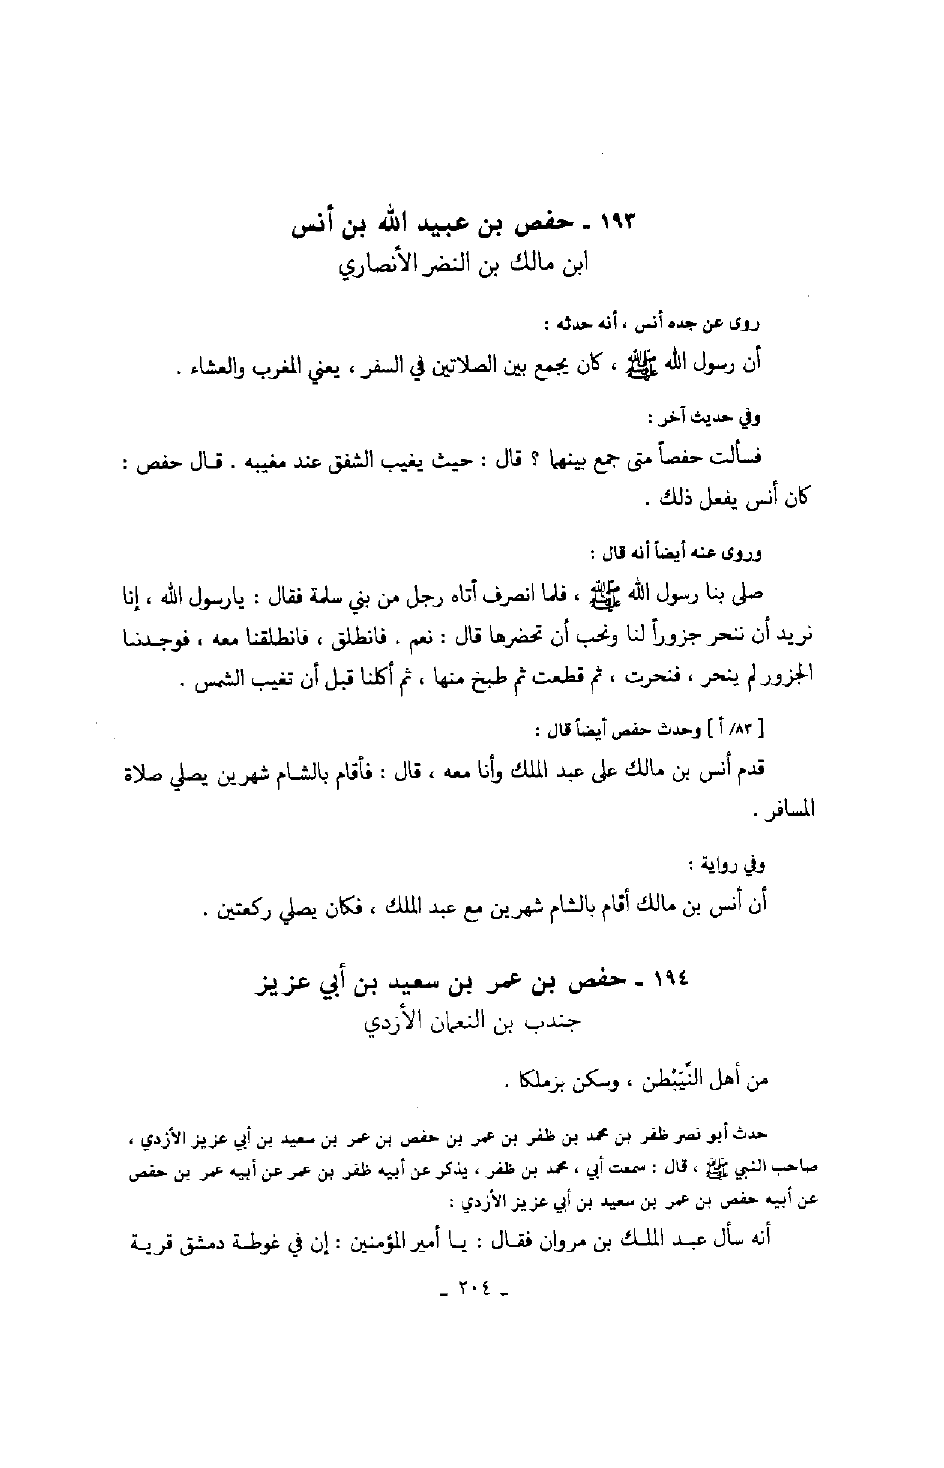 ١٩٣ ـ حفص بن عبيد الله بن أنس
ابن مالك بن النضر الأنصاري
روى عن جده أنس ، أنه حدثه :
أن رسول الله ﷺ ، كان يجمع بين الصلاتين في السفر ، يعني المغرب والعشاء .
وفي حديث آخر :
فسألت حفصاً متى جمع بينهما ؟ قال : حيث يغيب الشفق عند مغيبه . قال حفص :
كان أنس يفعل ذلك .
وروى عنه أيضاً أنه قال :
صلى بنا رسول الله ﷺ ، فلما انصرف أتاه رجل من بني سلمة فقال : يارسول الله ، إنا
نريد أن ننحر جزوراً لنا ونحب أن تحضرها قال : نعم . فانطلق ، فانطلقنا معه ، فوجدنا
الجزور لم ينحر ، فنحرت ، ثم قطعت ثم طبخ منها ، ثم أكلنا قبل أن تغيب الشمس .
[ ٨٣/ أ ] وحدث حفص أيضاً قال :
قدم أنس بن مالك على عبد الملك وأنا معه ، قال : فأقام بالشام شهرين يصلي صلاة
المسافر .
وفي رواية :
أن أنس بن مالك أقام بالشام شهرين مع عبد الملك ، فكان يصلي ركعتين .
١٩٤ ـ حفص بن عمر بن سعيد بن أبي عزيز
جندب بن النعمان الأزدي
من أهل النَّيْبَطن ، وسكن بزملكا .
حدث أبو نصر ظفر بن محمد بن ظفر بن عمر بن حفص بن عمر بن سعيد بن أبي عزيز الأزدي ،
صاحب النبي ﷺ ، قال : سمعت أبي ، محمد بن ظفر ، يذكر عن أبيه ظفر بن عمر عن أبيه عمر بن حفص
عن أبيه حفص بن عمر بن سعيد بن أبي عزيز الأزدي :
أنه سأل عبد الملك بن مروان فقال : يا أمير المؤمنين : إن في غوطة دمشق قرية
ـ ٢٠٤ ـ